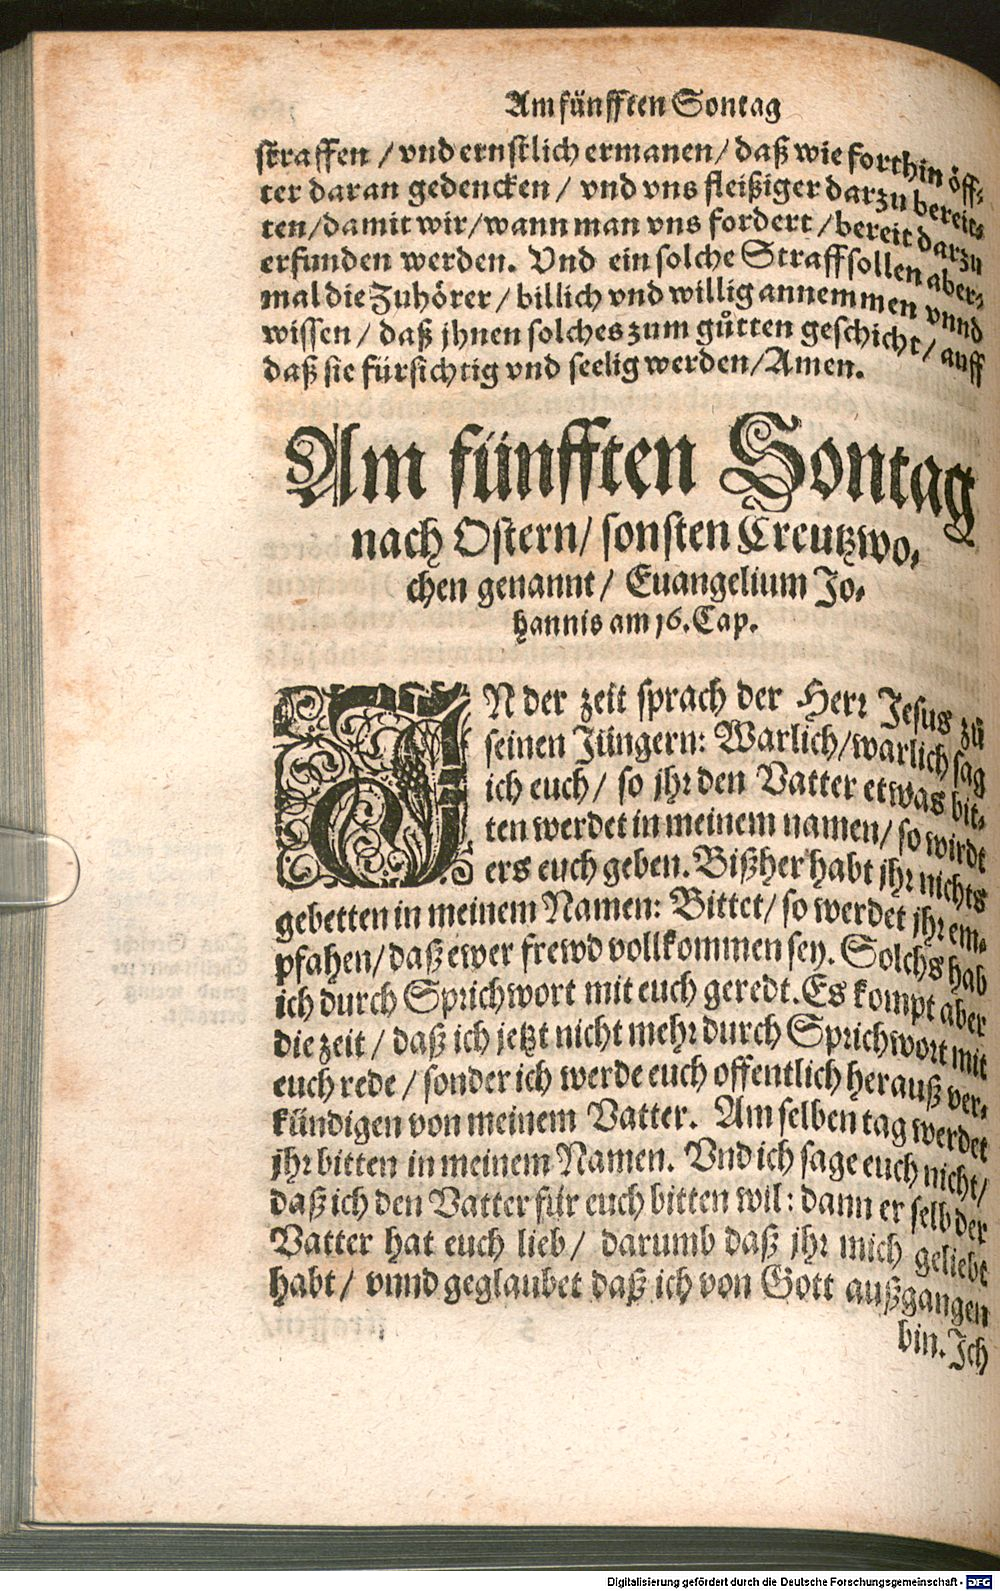 Am fünfften Sontag
straffen / vnd ernstlich ermanen / daß wie forthin öff⸗
ter daran gedencken / vnd vns fleißiger darzu bereit⸗
ten / damit wir / wann man vns fordert / bereit darzu
erfunden werden. Vnd ein solche Straff sollen aber⸗
mal die Zuhörer / billich vnd willig annemmen vnnd
wissen / daß jhnen solches zum gůtten geschicht / auff
daß sie fürsichtig vnd seelig werden / Amen.
Am fünfften Sontag
nach Ostern / sonsten Creutzwo⸗
chen genannt / Euangelium Jo⸗
hannis am 16. Cap.
JN der zeit sprach der Herr Jesus zů
seinen Jüngern: Warlich / warlich sag
ich euch / so jhr den Vatter etwas bit⸗
ten werdet in meinem namen / so wirdt
ers euch geben. Bißher habt jhr nichts
gebetten in meinem Namen: Bittet / so werdet jhr em⸗
pfahen / daß ewer frewd vollkommen sey. Solchs hab
ich durch Sprichwort mit euch geredt. Es kompt aber
die zeit / daß ich jetzt nicht mehr durch Sprichwort mit
euch rede / sonder ich werde euch offentlich herauß ver⸗
kündigen von meinem Vatter. Am selben tag werdet
jhr bitten in meinem Namen. Vnd ich sage euch nicht /
daß ich den Vatter für euch bitten wil: dann er selb der
Vatter hat euch lieb / darumb daß jhr mich geliebt
habt / vnnd geglaubet daß ich von Gott außgangen
bin. Ich
Digitalisierung gefördert durch die Deutsche Forschungsgemeinschaft - DFG